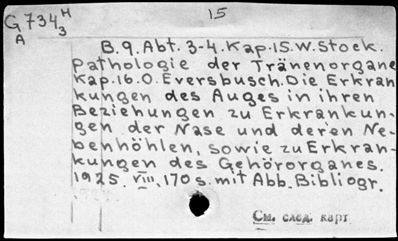 G 734 H 15
A 3
B.9. Abt. 3-4. Kap. 15. W. Stock.
Pathologie der Tränenorgane
Kap. 16. O. Eversbusch. Die Erkran-
kungen des Auges in ihren
Beziehungen zu Erkrankun-
gen der Nase und deren Ne-
benhöhlen, sowie zu Erkran-
kungen des Gehörorganes.
1925. VIII, 170 s. mit Abb. Bibliogr.
См. след. карт